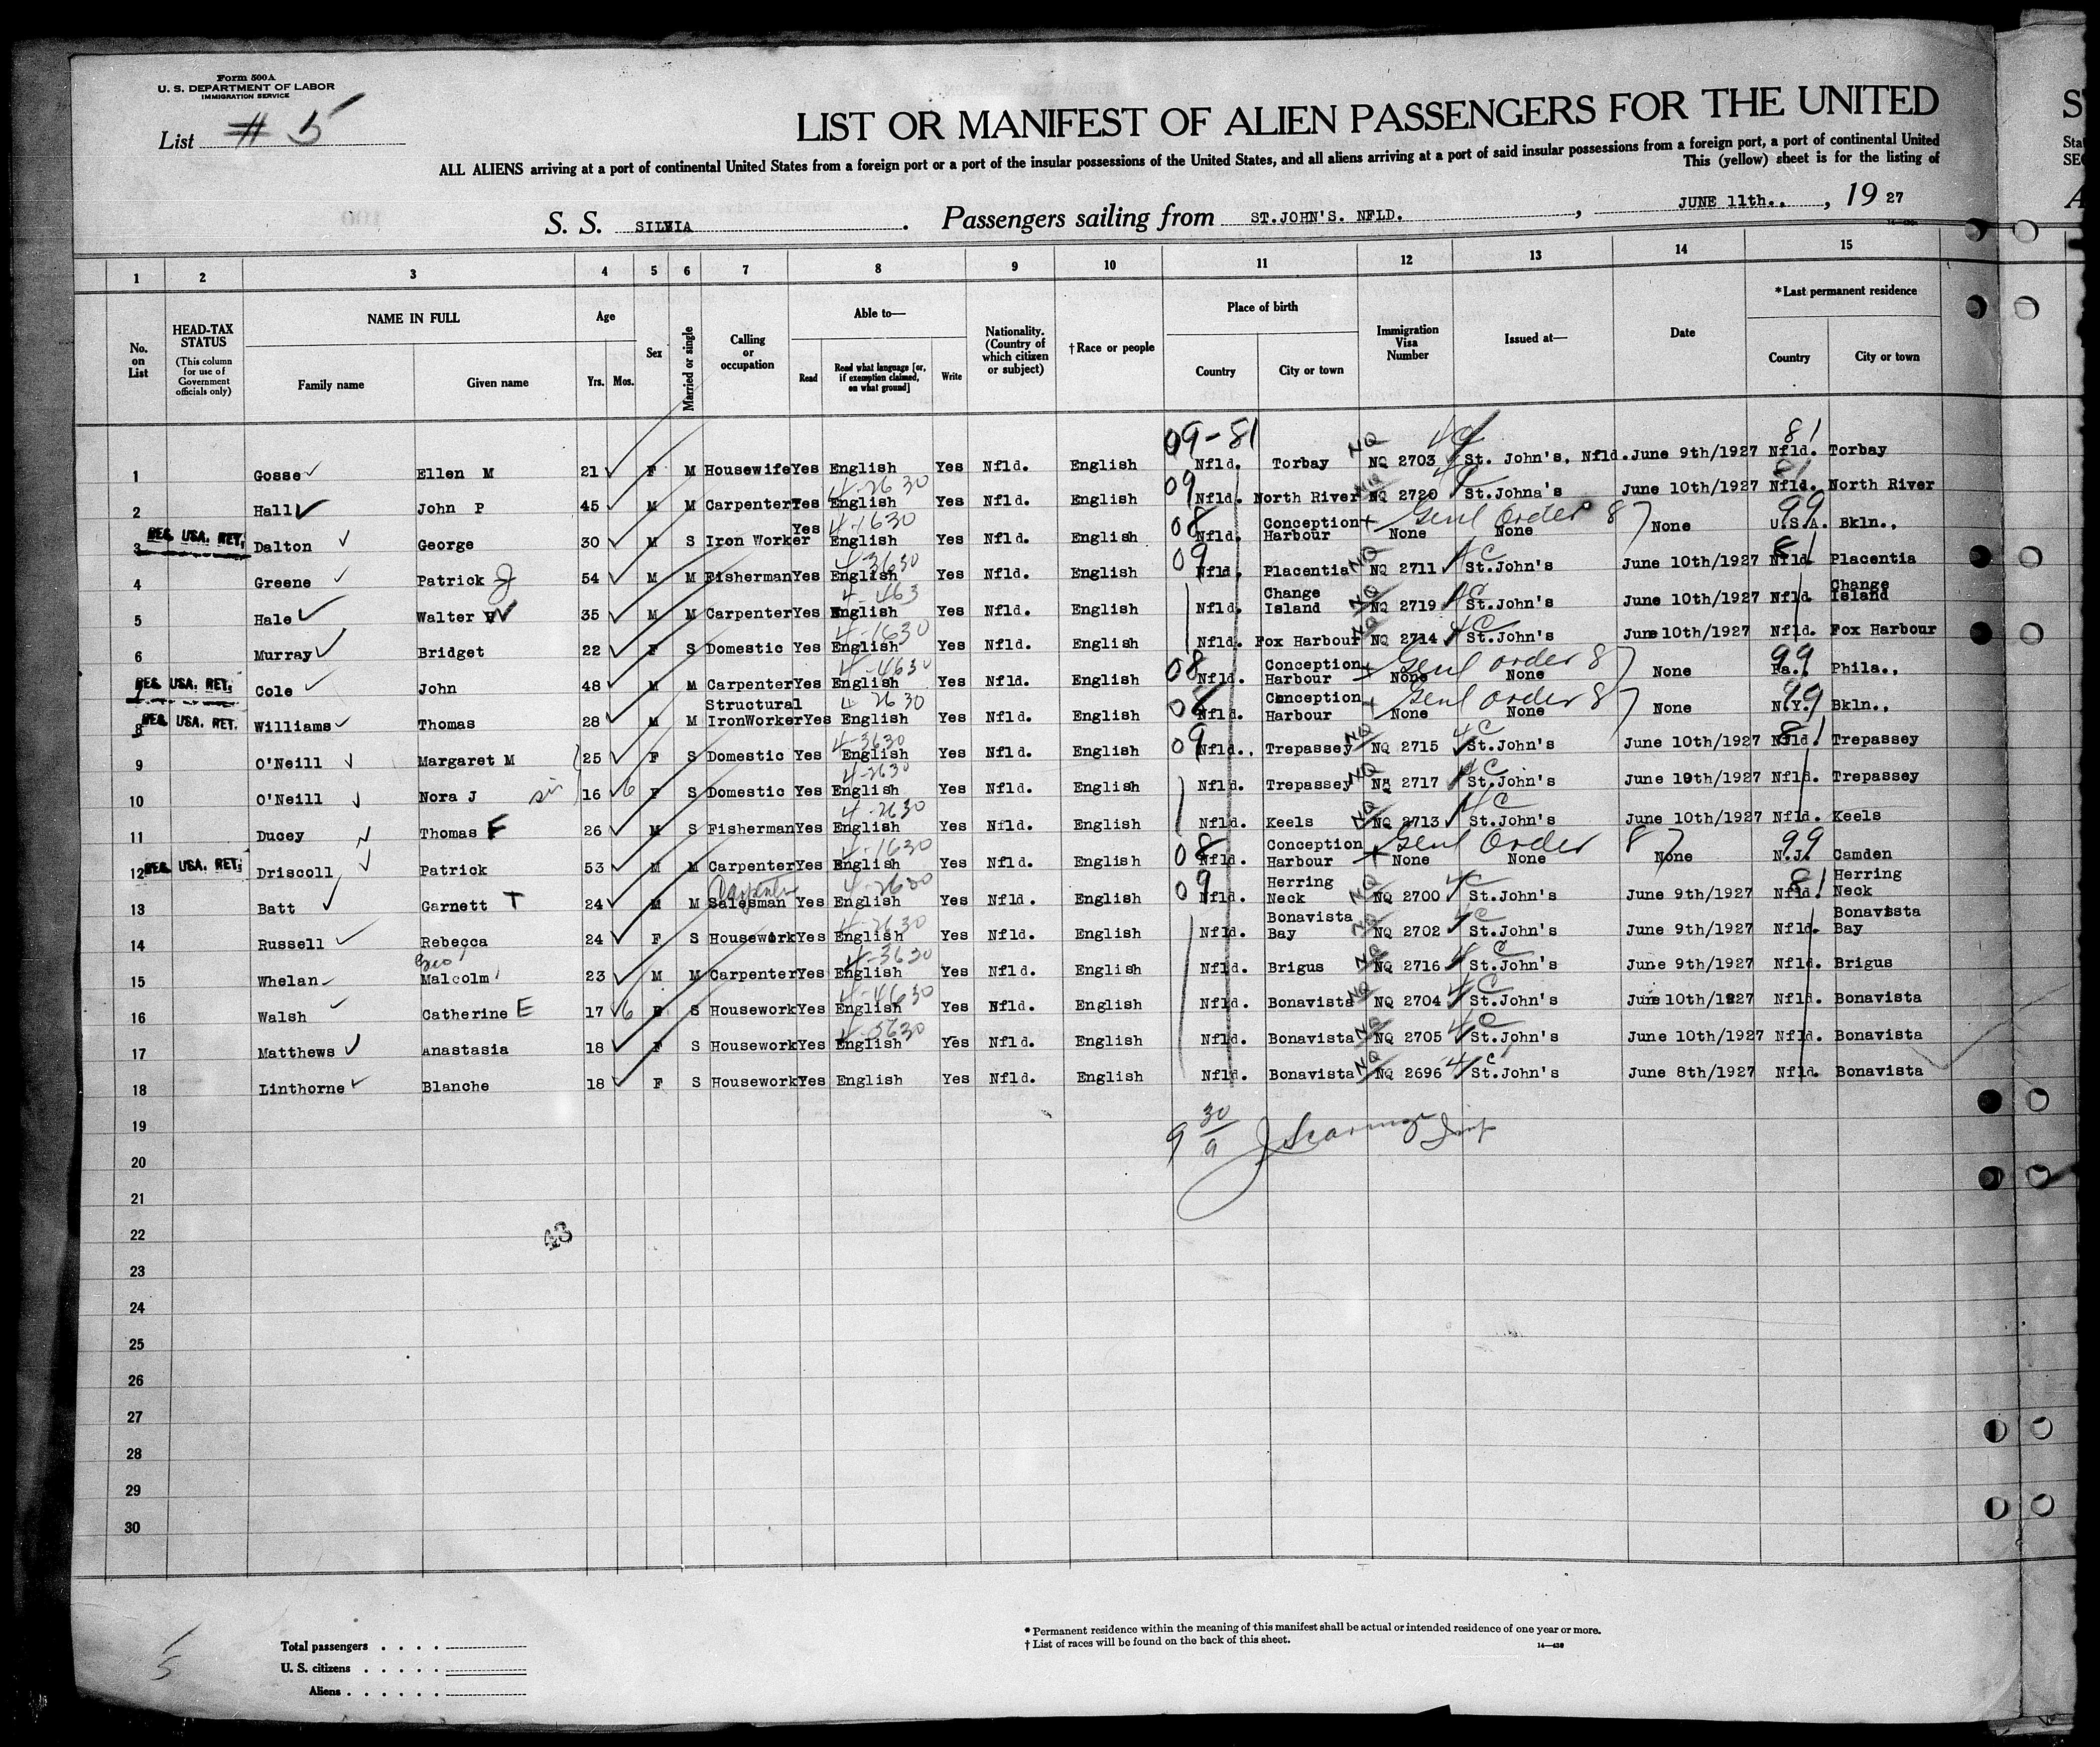 Form 500A
U. S. DEPARTMENT OF LABOR
IMMIGRATION SERVICE
List # 5
LIST OR MANIFEST OF ALIEN PASSENGERS FOR THE UNITED
ALL ALIENS arriving at a port of continental United States from a foreign port or a port of the insular possessions of the United States, and all aliens arriving at a port of said insular possessions from a foreign port, a port of continental United
This (yellow) sheet is for the listing of
S. S. SILVIA . Passengers sailing from ST.JOHN'S. NFLD. , JUNE 11th., , 19 27
1 2 3 4 5 6 7 8 9 10 11 12 13 14 15
No. on List
HEAD-TAX STATUS (This column for use of Government officials only)
NAME IN FULL Family name Given name
Age Yrs. Mos.
Sex
Married or single
Calling or occupation
Able to— Read Read what language [or, if exemption claimed, on what ground] Write
Nationality. (Country of which citizen or subject)
†Race or people
Place of birth Country City or town
Immigration Visa Number
Issued at—
Date
*Last permanent residence Country City or town
09-81 NQ 4C 81
1 Gosse Ellen M 21 F M Housewife Yes English Yes Nfld. English Nfld. Torbay NQ 2703 St. John's, Nfld. June 9th/1927 Nfld. Torbay
4-2630 09 81
2 Hall John P 45 M M Carpenter Yes English Yes Nfld. English Nfld. North River NQ 2720 St.Johna's June 10th/1927 Nfld. North River
4-1630 08 Genl Order 87 99
REG. USA. RET. 3 Dalton George 30 M S Iron Worker Yes English Yes Nfld. English Nfld. Conception Harbour None None None U.S.A. Bkln.,
4-3630 09 NQ 4C 81
4 Greene Patrick J 54 M M Fisherman Yes English Yes Nfld. English Nfld. Placentia NQ 2711 St.John's June 10th/1927 Nfld Placentia
4-463 NQ 4C
5 Hale Walter W 35 M M Carpenter Yes English Yes Nfld. English Nfld. Change Island NQ 2719 St.John's June 10th/1927 Nfld. Change Island
4-1630 NQ 4C
6 Murray Bridget 22 F S Domestic Yes English Yes Nfld. English Nfld. Fox Harbour NQ 2714 St.John's June 10th/1927 Nfld. Fox Harbour
4-4630 08 Genl order 87 99
REG. USA. RET. 7 Cole John 48 M M Carpenter Yes English Yes Nfld. English Nfld. Conception Harbour None None None Pa. Phila.,
4 2630 08 Genl order 87 99
REG. USA. RET. 8 Williams Thomas 28 M M Structural IronWorker Yes English Yes Nfld. English Nfld. Conception Harbour None None None N.Y. Bkln.,
4-3630 09 NQ 4C 81
9 O'Neill Margaret M 25 F S Domestic Yes English Yes Nfld. English Nfld.. Trepassey NQ 2715 St.John's June 10th/1927 Nfld. Trepassey
4-2630 NQ 4C
10 O'Neill Nora J sis 16 6 F S Domestic Yes English Yes Nfld. English Nfld. Trepassey NQ 2717 St.John's June 10th/1927 Nfld. Trepassey
4-2630 NQ 4C
11 Ducey Thomas F 26 M S Fisherman Yes English Yes Nfld. English Nfld. Keels NQ 2713 St.John's June 10th/1927 Nfld. Keels
4-1630 08 Genl Order 87 99
REG. USA. RET. 12 Driscoll Patrick 53 M M Carpenter Yes English Yes Nfld. English Nfld. Conception Harbour None None None N.J. Camden
Carpenter 4-2630 09 NQ 4C 81
13 Batt Garnett T 24 M M Salesman Yes English Yes Nfld. English Nfld. Herring Neck NQ 2700 St.John's June 9th/1927 Nfld. Herring Neck
4-2630 NQ 4C
14 Russell Rebecca 24 F S Housework Yes English Yes Nfld. English Nfld. Bonavista Bay NQ 2702 St.John's June 9th/1927 Nfld. Bonavista Bay
Geo 4-3630 NQ 4C
15 Whelan Malcolm 23 M M Carpenter Yes English Yes Nfld. English Nfld. Brigus NQ 2716 St.John's June 9th/1927 Nfld. Brigus
4-4630 NQ 4C
16 Walsh Catherine E 17 6 F S Housework Yes English Yes Nfld. English Nfld. Bonavista NQ 2704 St.John's June 10th/1927 Nfld. Bonavista
4-5630 NQ 4C
17 Matthews Anastasia 18 F S Housework Yes English Yes Nfld. English Nfld. Bonavista NQ 2705 St.John's June 10th/1927 Nfld. Bonavista
NQ 4C
18 Linthorne Blanche 18 F S Housework Yes English Yes Nfld. English Nfld. Bonavista NQ 2696 St.John's June 8th/1927 Nfld. Bonavista
19
9 30/9
20
21
22
23
24
25
26
27
28
29
30
5
Total passengers
U. S. citizens
Aliens
* Permanent residence within the meaning of this manifest shall be actual or intended residence of one year or more.
† List of races will be found on the back of this sheet.
14—430